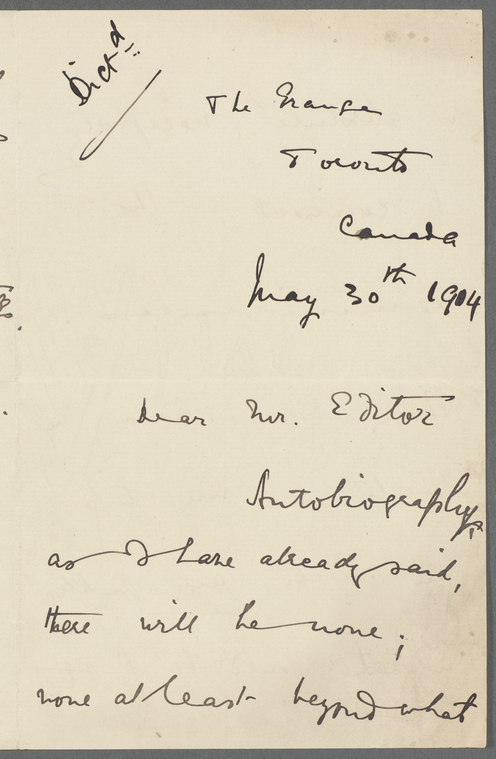 Dict'd.
The Grange
Toronto
Canada
May 30th 1904
Dear Mr. Editor
Autobiography,
as I have already said,
there will be none;
none at least beyond what